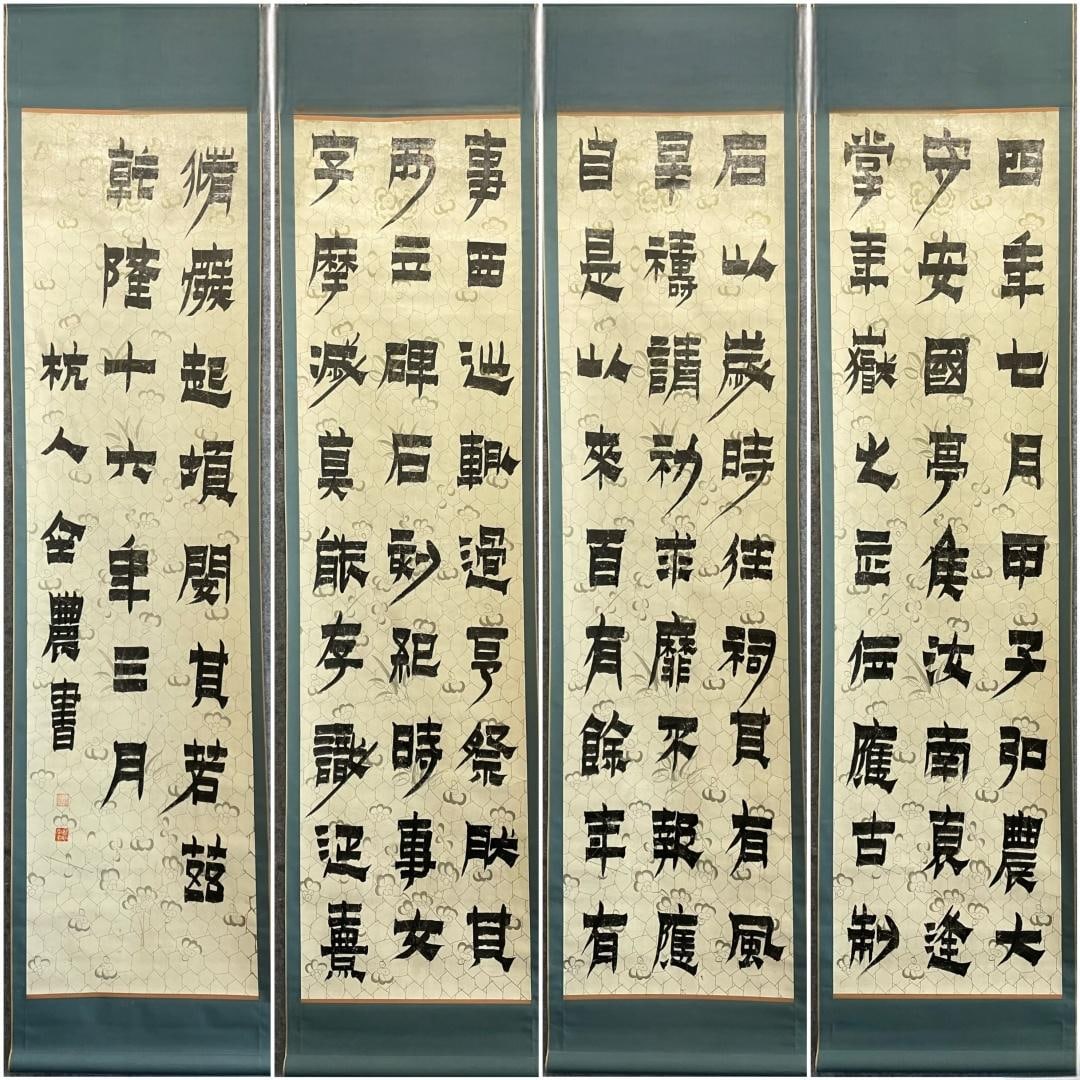 四年七月甲子弘農大
守安國亭侯汝南袁逢
掌華嶽之主位應古制
后以歲時往祠其有風
旱禱請祈求靡不報應
自是以來百有餘年有
事西巡輒過亨祭然其
所立碑石刻紀時事文
字摩滅莫能存識延熹
脩廢起頓閔其若茲
乾隆十六年三月
杭人金農書